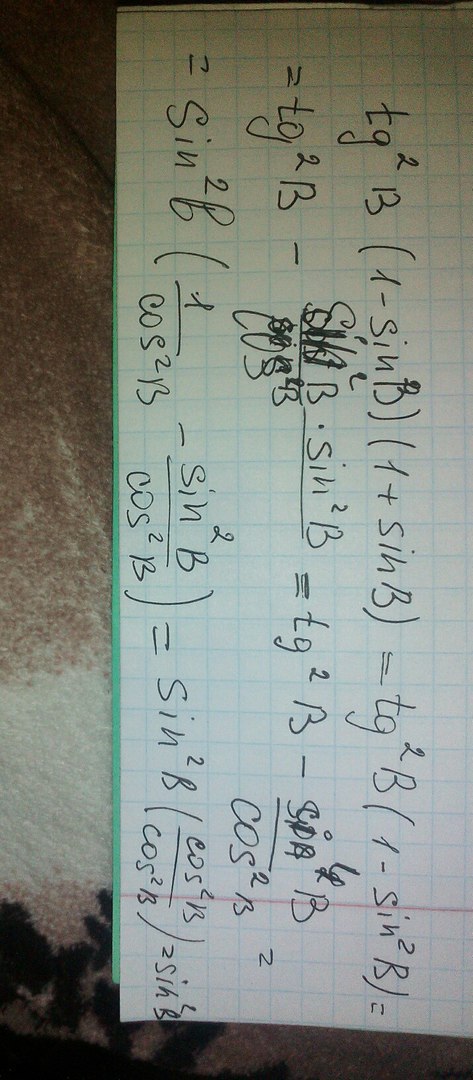 tg²B (1-sin²B)(1+sinB) = tg²B(1-sin²B)=
=tg²B - sin²B·sin²B/cos²B = tg²B - sin⁴B/cos²B =
= sin²B (1/cos²B - sin²B/cos²B) = sin²B(cos²B/cos²B)=sin²B